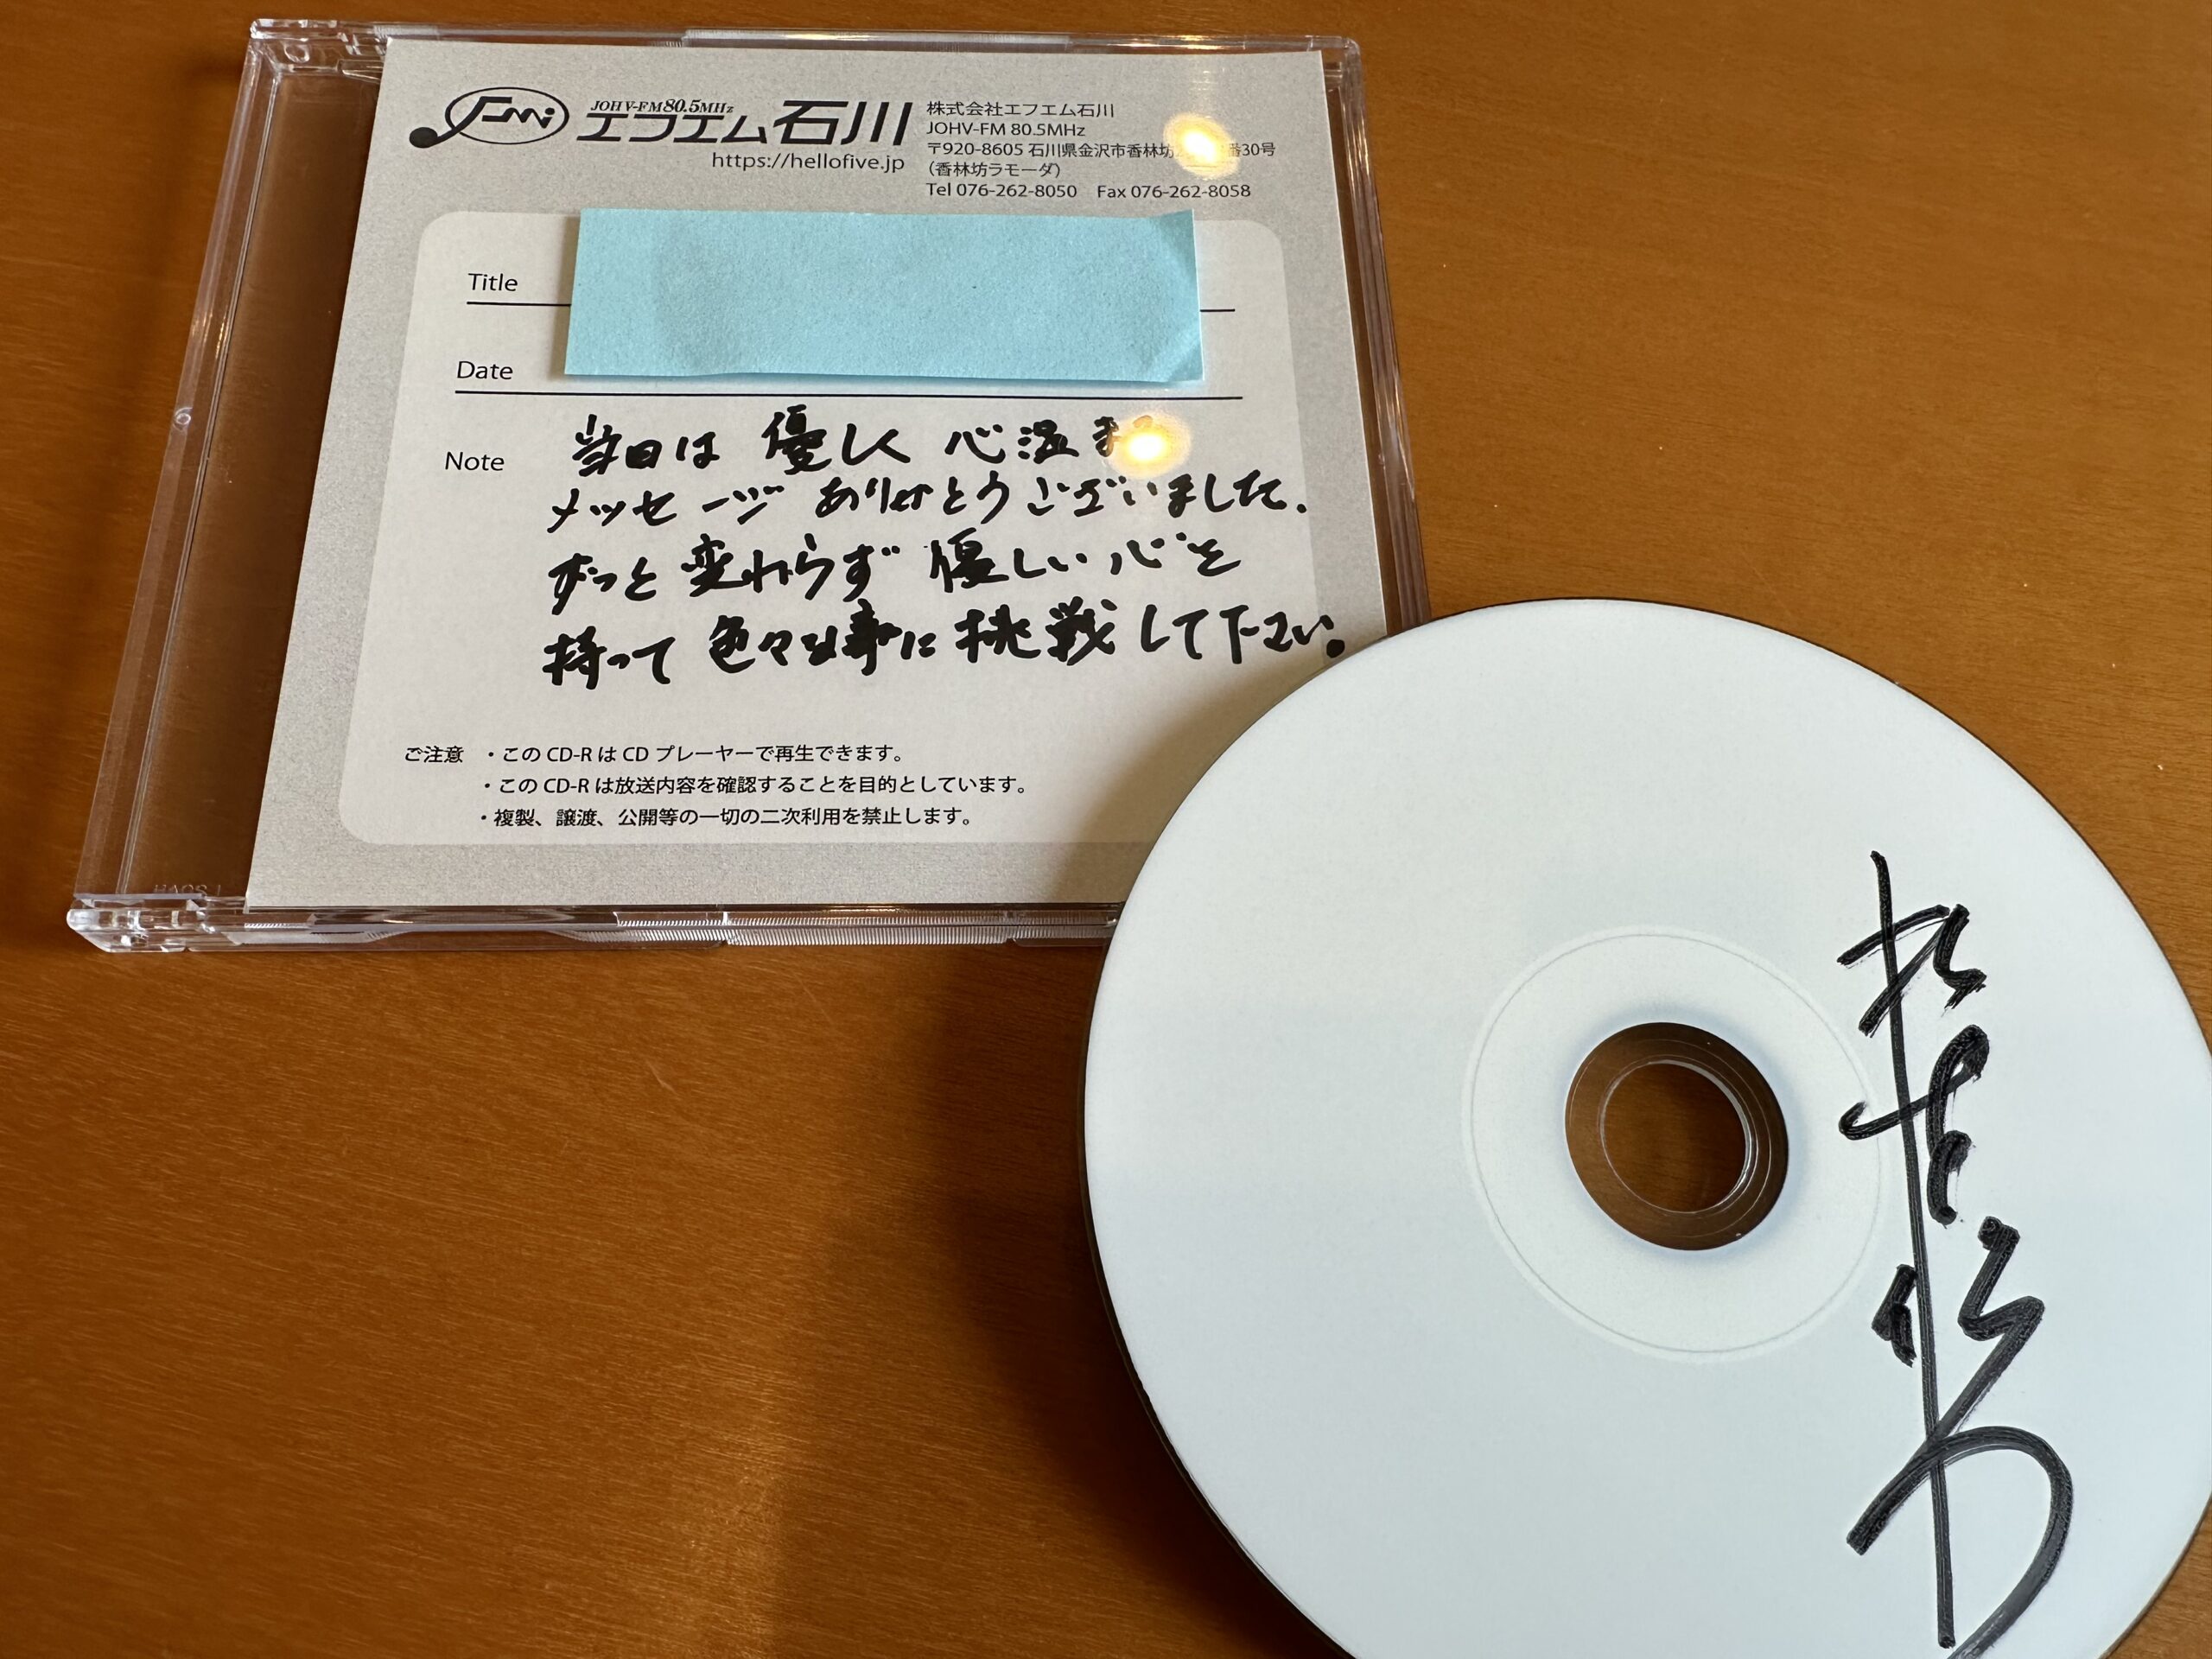 JOHV-FM 80.5MHz
エフエム石川
https://hellofive.jp
株式会社エフエム石川
JOHV-FM 80.5MHz
〒920-8605 石川県金沢市香林坊 番30号
（香林坊ラモーダ）
Tel 076-262-8050 Fax 076-262-8058
Title
Date
Note
当日は 優しく 心温ま
メッセージ ありがとうございました.
ずっと 変わらず 優しい 心を
持って 色々な事に 挑戦して下さい。
ご注意 ・この CD-R は CD プレーヤーで再生できます。
・この CD-R は放送内容を確認することを目的としています。
・複製、譲渡、公開等の一切の二次利用を禁止します。